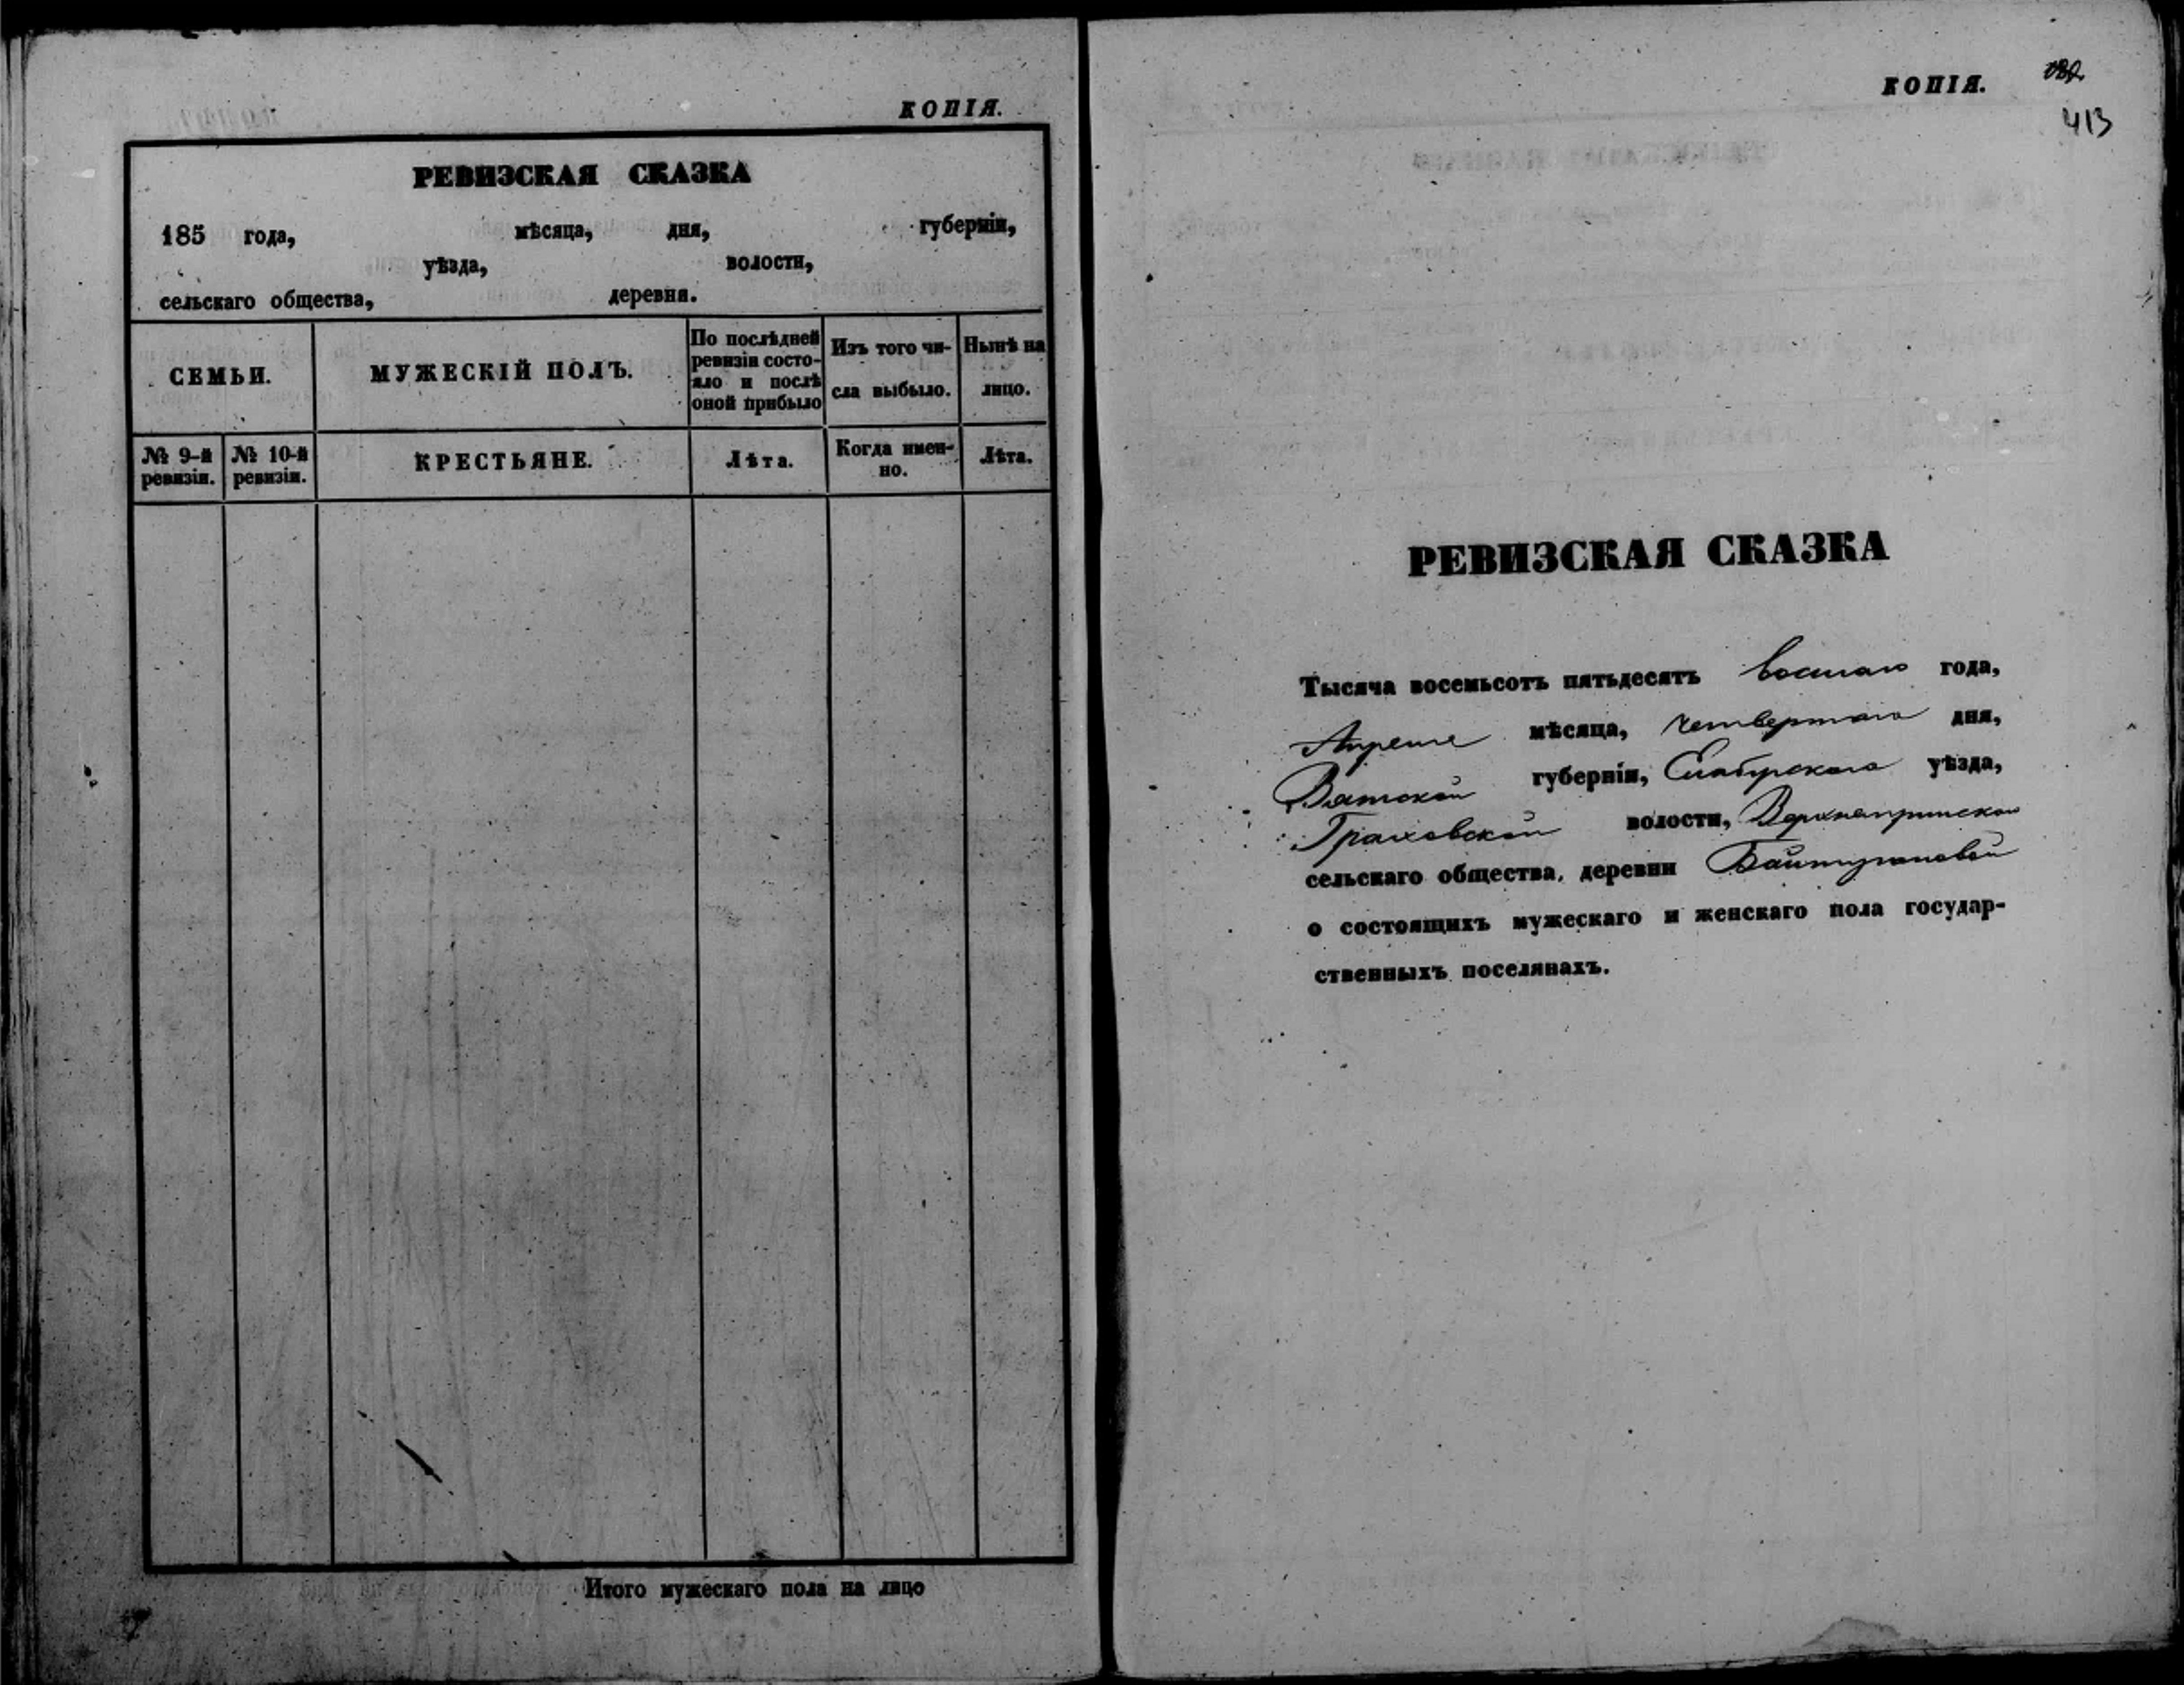 КОПІЯ.
РЕВИЗСКАЯ СКАЗКА
185 года, мѣсяца, дня, губерніи,
уѣзда, волости,
сельскаго общества, деревни.
СЕМЬИ.
МУЖЕСКІЙ ПОЛЪ.
По послѣдней
ревизіи состо-
яло и послѣ
оной прибыло
Изъ того чи-
сла выбыло.
Нынѣ на
лицо.
№ 9-й
ревизіи.
№ 10-й
ревизіи.
КРЕСТЬЯНЕ.
Лѣта.
Когда имен-
но.
Лѣта.
Итого мужескаго пола на лицо
КОПІЯ.
413
РЕВИЗСКАЯ СКАЗКА
Тысяча восемьсотъ пятьдесятъ восьмаго года,
Апреля мѣсяца, четвертаго дня,
Вятской губерніи, Елабужскаго уѣзда,
Граховской волости,
сельскаго общества, деревни Баитугановой
о состоящихъ мужескаго и женскаго пола государ-
ственныхъ поселянахъ.